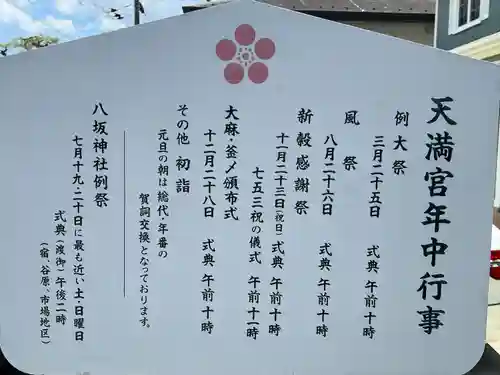 天満宮年中行事
例大祭
三月二十五日 式典 午前十時
風祭
八月二十六日 式典 午前十時
新穀感謝祭
十一月二十三日(祝日)式典 午前十時
七五三祝の儀式 午前十一時
大麻・釜〆頒布式
十二月二十八日 式典 午前十時
その他 初詣
元旦の朝は総代・年番の
賀詞交換となっております。
八坂神社例祭
七月十九・二十日に最も近い土・日曜日
式典(渡御)午後二時
(宿、谷原、市場地区)